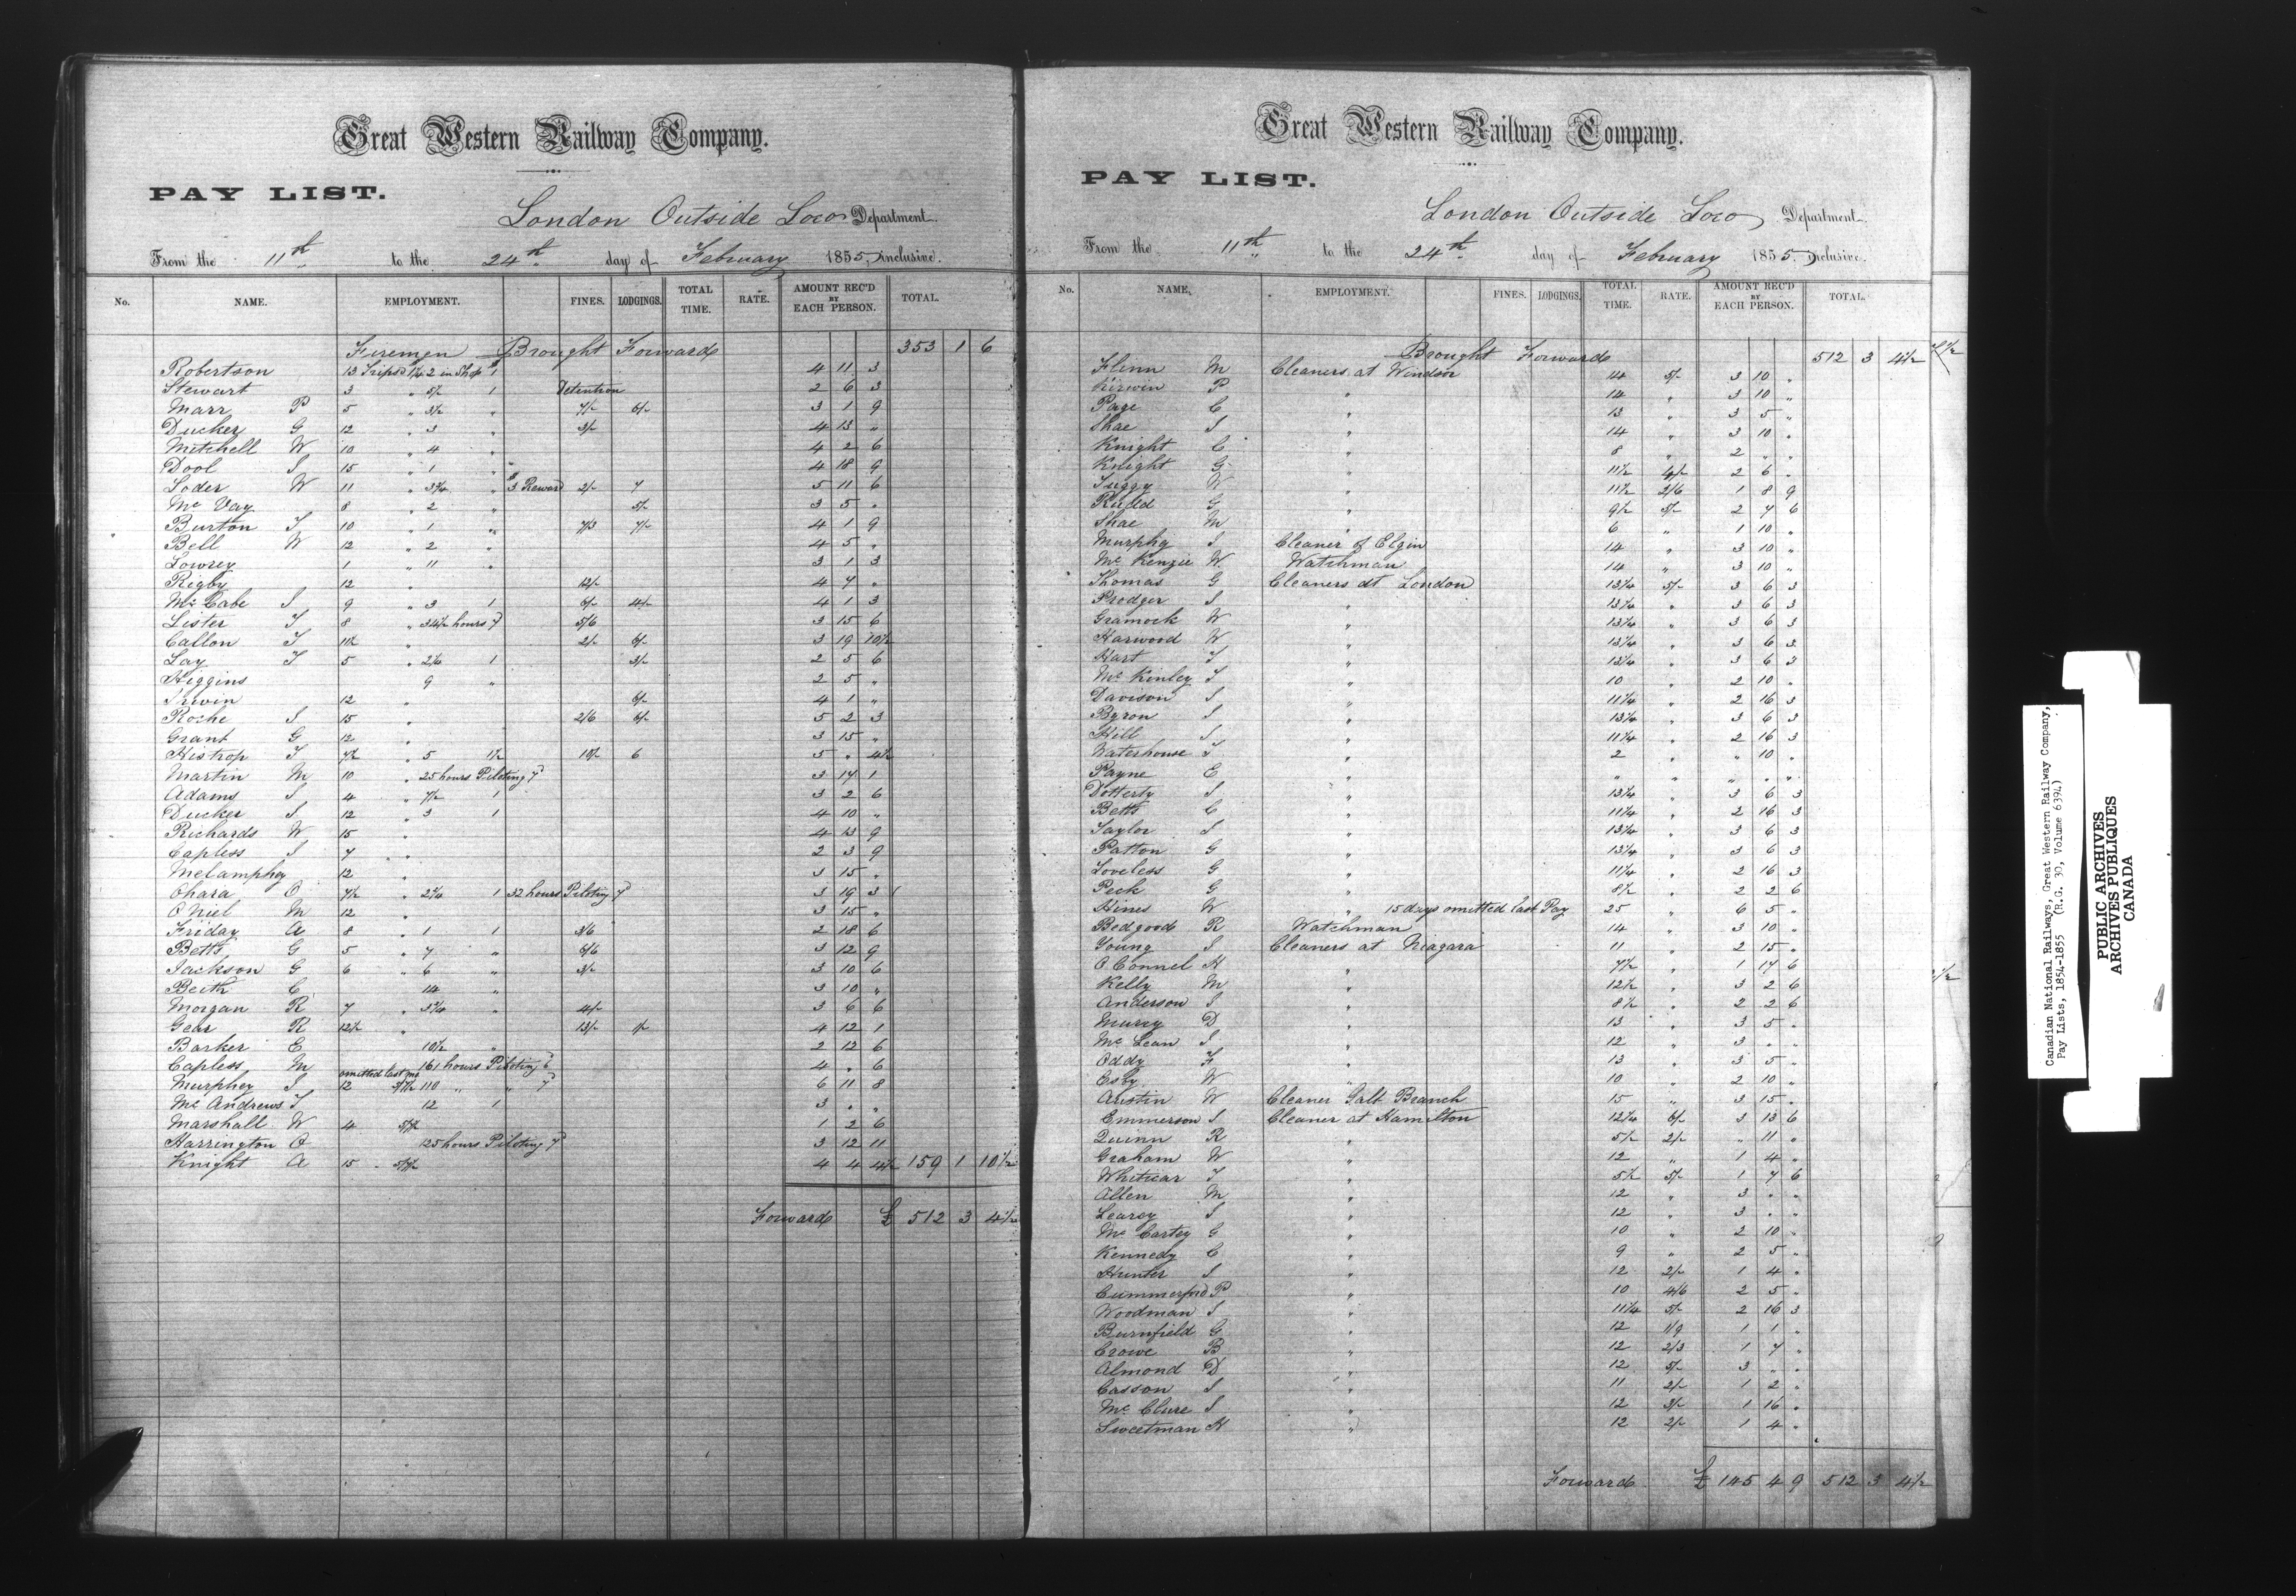 Great Western Railway Company.
PAY LIST.
London Outside Loco Department.
From the 11th to the 24th day of February 1855 Inclusive.
No. NAME. EMPLOYMENT. FINES. LODGINGS. TOTAL TIME. RATE. AMOUNT REC'D BY EACH PERSON. TOTAL.
Firemen Brought Forward 353 1 6
Robertson 13 Trips 2 in Shop 4 11 3
Stewart 3 " 5/2 1 Detention 2 6 3
Marr P 5 " 3/2 " 7/- 6/- 3 1 9
Ducker G 12 " 3 " 3/- 4 13 "
Mitchell W 10 " 4 " 4 2 6
Dool S 15 " 1 " 4 18 9
Loder W 11 " 3 3/4 " 3 Reward 2/- 7 5 11 6
Mc Vay 8 " 2 " 5/- 3 5 "
Burton T 10 " 1 " 7/3 7/- 4 1 9
Bell W 12 " 2 " 4 5 "
Lowrey 1 " 11 " 3 1 3
Rigby 12 " 12/- 4 7 "
Mc Cabe S 9 " 3 1 6/- 4/- 4 1 3
Lister T 8 " 34 1/2 hours 7d 5/6 3 15 6
Callon T 10 1/2 " 2/- 6/- 3 19 10 1/2
Lay T 5 " 2 1/4 1 3/- 2 5 6
Higgins 9 " 2 5 "
Irwin 12 " 6/- 4 1 "
Roche S 15 " 2/6 6/- 5 2 3
Grant G 12 " 3 15 "
Histrop T 7 1/2 " 5 1 1/2 10/- 6 5 " 4 1/2
Martin M 10 " 25 hours Piloting 7d 3 17 1
Adams S 4 " 7 1/2 1 3 2 6
Ducker S 12 " 3 1 4 10 "
Richards W 15 " 4 13 9
Capless S 7 " 2 3 9
Melamphey 12 " 3 15 "
Ohara O 7 1/2 " 2 1/4 1 32 hours Piloting 7d 3 19 3
O Niel M 12 " 3 15 "
Friday A 8 " 1 1 3/6 2 18 6
Betts G 5 " 7 " 6/6 3 12 9
Jackson G 6 " 6 " 3/- 3 10 6
Beith C 14 " 3 10 "
Morgan R 7 " 5 1/4 " 4/- 3 6 6
Gear R 12 1/2 " 13/- 1/- 4 12 1
Barker E 10 1/2 " 2 12 6
Capless M 161 hours Piloting 6d 4 " 6
omitted last
Murphey S 12 110 " " 7d 6 11 8
Mc Andrews T 12 1 3 " "
Marshall W 4 1 2 6
Harrington A 125 hours Piloting 7d 3 12 11
Knight A 15 4 4 4 1/2 159 1 10 1/2
Forward £ 512 3 4 1/2
Great Western Railway Company.
PAY LIST.
London Outside Loco Department.
From the 11th to the 24th day of February 1855 Inclusive.
No. NAME. EMPLOYMENT. FINES. LODGINGS. TOTAL TIME. RATE. AMOUNT REC'D BY EACH PERSON. TOTAL.
Brought Forward 512 3 4 1/2
Flinn M Cleaners at Windsor 14 5/- 3 10 "
Kirwin P " 14 " 3 10 "
Page C " 13 " 3 5 "
Shae S " 14 " 3 10 "
Knight C " 8 " 2 " "
Knight G " 11 1/2 4/- 2 6 "
Tuggy W " 11 1/2 2/6 1 8 9
Rudd G " 9 1/2 5/- 2 7 6
Shae M " 6 " 1 10 "
Murphy S Cleaner of Elgin 14 " 3 10 "
Mc Kenzie W Watchman 14 " 3 10 "
Thomas G Cleaners at London 13 1/4 5/- 3 6 3
Prodger S " 13 1/4 " 3 6 3
Gramock W " 13 1/4 " 3 6 3
Harwood W " 13 1/4 " 3 6 3
Hart T " 13 1/4 " 3 6 3
Mc Kinley T " 10 " 2 10 "
Davison S " 11 1/4 " 2 16 3
Byron S " 13 1/4 " 3 6 3
Hill S " 11 1/4 " 2 16 3
Waterhouse T " 2 " " 10 "
Payne E " " " " " "
Dotterty S " 13 1/4 " 3 6 3
Betts C " 11 1/4 " 2 16 3
Taylor S " 13 1/4 " 3 6 3
Patton G " 13 1/4 " 3 6 3
Loveless G " 11 1/4 " 2 16 3
Peck G " 8 1/2 " 2 2 6
Hines W " 15 days omitted last Pay 25 " 6 5 "
Bedgood R Watchman 14 " 3 10 "
Young S Cleaners at Niagara 11 " 2 15 "
O Connel H " 7 1/2 " 1 17 6
Kelly M " 12 1/2 " 3 2 6
Anderson S " 8 1/2 " 2 2 6
Murcy D " 13 " 3 5 "
Mc Lean S " 12 " 3 " "
Oddy F " 13 " 3 5 "
Esby W " 10 " 2 10 "
Austin W Cleaner Galt Branch 15 " 3 15 "
Emmerson S Cleaner at Hamilton 12 1/4 6/- 3 13 6
Quinn R " 5 1/2 2/- " 11 "
Graham W " 12 " 1 4 "
Whiticar T " 5 1/2 5/- 1 7 6
Allen M " 12 " 3 " "
Learcy S " 12 " 3 " "
Mc Cartey G " 10 " 2 10 "
Kennedy C " 9 " 2 5 "
Hunter S " 12 2/- 1 4 "
Cummerford P " 10 4/6 2 5 "
Woodman S " 11 1/4 5/- 2 16 3
Burnfield G " 12 1/9 1 1 "
Crowe B " 12 2/3 1 7 "
Almond D " 12 5/- 3 " "
Casson S " 11 2/- 1 2 "
Mc Clure S " 12 3/- 1 16 "
Sweetman H " 12 2/- 1 4 "
Forward £ 145 4 9 512 3 4 1/2
Canadian National Railways, Great Western Railway Company,
Pay Lists, 1854-1855 (R.G. 30, Volume 6394)
PUBLIC ARCHIVES
ARCHIVES PUBLIQUES
CANADA